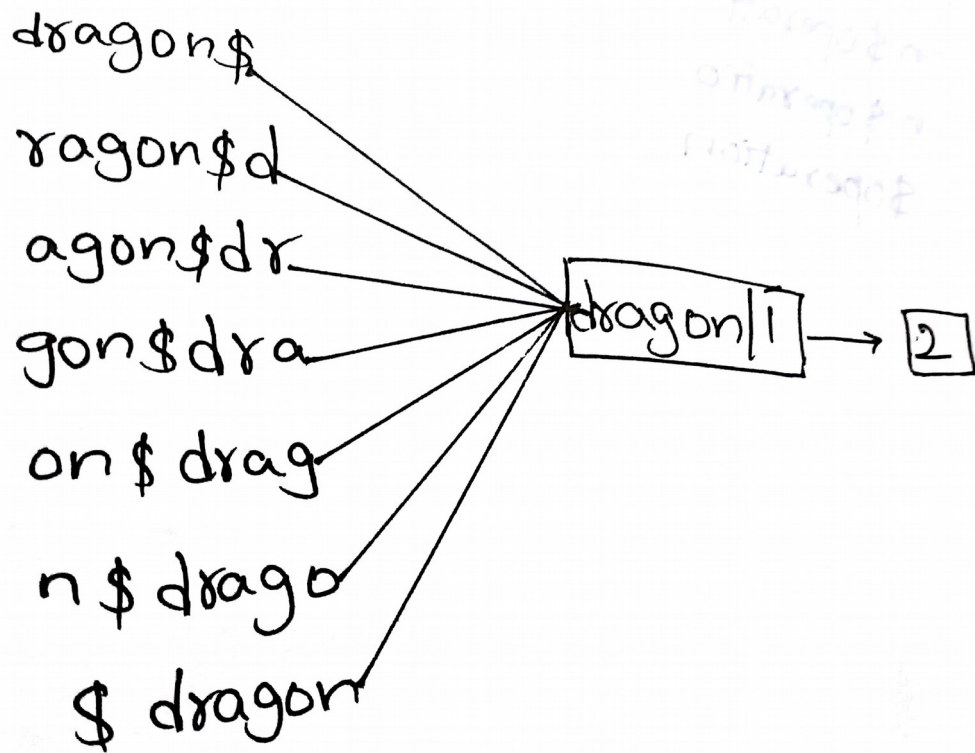 dragon$
ragon$d
agon$dr
gon$dra
on$ drag
n$ drago
$ dragon
dragon|1
2